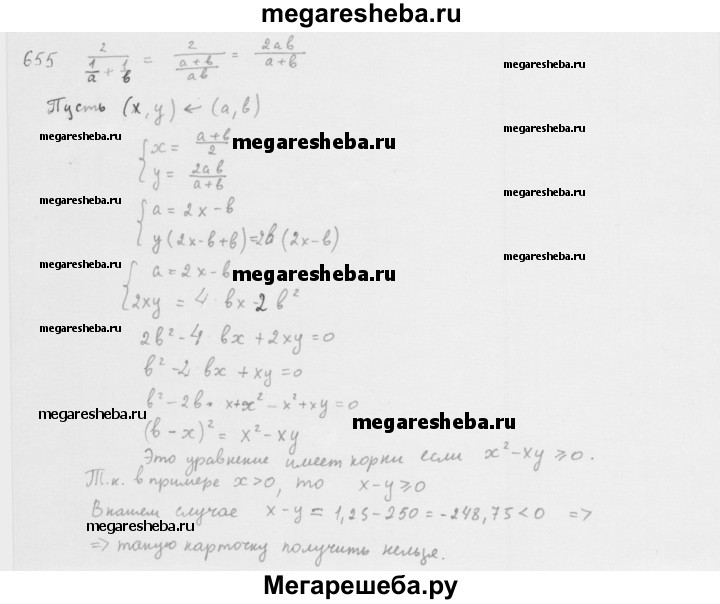 megaresheba.ru
655 2/(1/a + 1/в) = 2/((a+в)/aв) = 2aв/(a+в)
megaresheba.ru
Пусть (x, y) ← (a, в)
megaresheba.ru megaresheba.ru
{ x = (a+в)/2 megaresheba.ru
y = 2aв/(a+в)
megaresheba.ru megaresheba.ru
{ a = 2x - в
y(2x-в+в)=2в(2x-в)
megaresheba.ru megaresheba.ru
{ a = 2x - в megaresheba.ru
2xy = 4 вx-2 в²
megaresheba.ru megaresheba.ru
2в²-4 вx + 2xy = 0
в² - 2 вx + xy = 0
в² - 2в • x + x² - x² + xy = 0
megaresheba.ru megaresheba.ru
(в - x)² = x² - xy
Это уравнение имеет корни если x² - xy ≥ 0.
Т.к. в примере x>0, то x-y≥0
В нашем случае x-y = 1,25-250 = -248,75<0 =>
megaresheba.ru
=> такую карточку получить нельзя.
Мегарешеба.ру